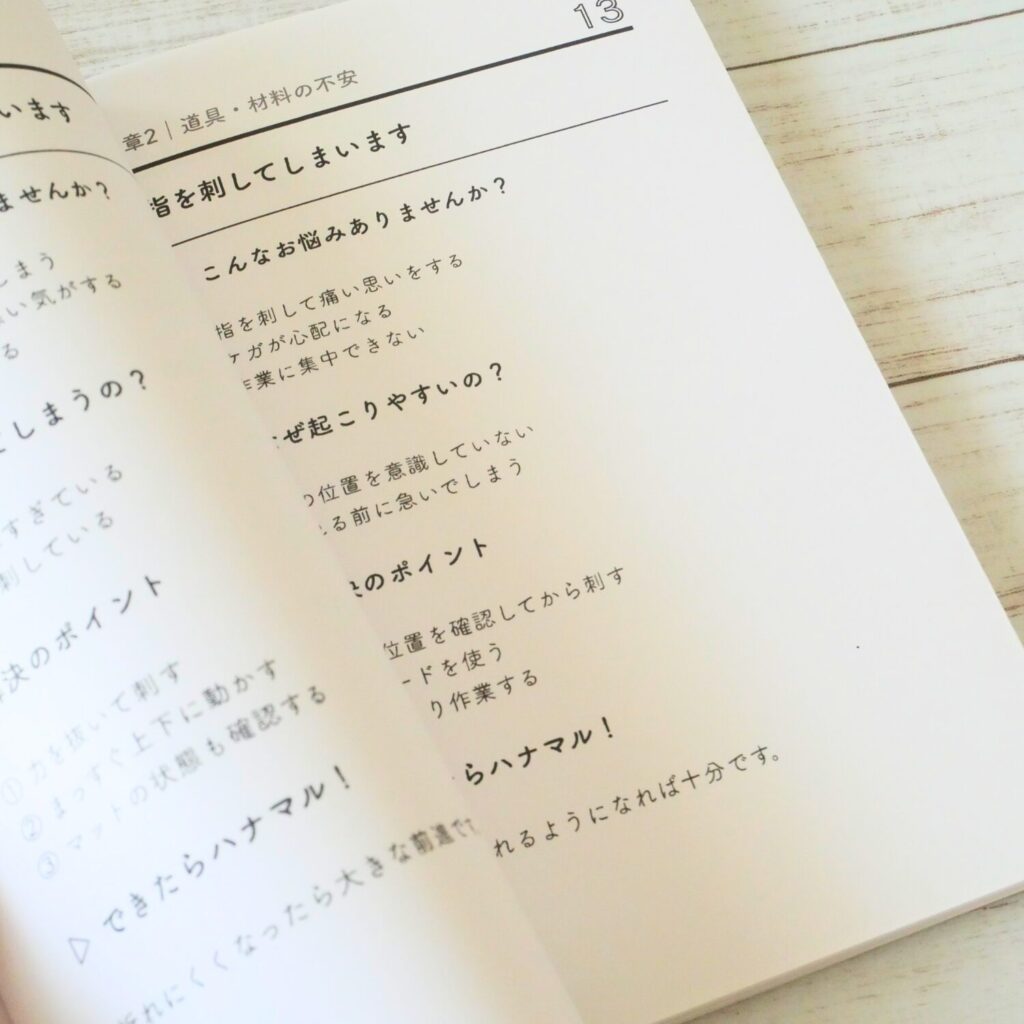 います
ませんか？
しまう
い気がする
る
しまうの？
すぎている
刺している
決のポイント
①力を抜いて刺す
②まっすぐ上下に動かす
③マットの状態も確認する
▷できたらハナマル！
折れにくくなったら大きな前進です
13
章2｜道具・材料の不安
指を刺してしまいます
こんなお悩みありませんか？
指を刺して痛い思いをする
ケガが心配になる
作業に集中できない
ぜ起こりやすいの？
の位置を意識していない
る前に急いでしまう
のポイント
位置を確認してから刺す
ードを使う
り作業する
らハナマル！
れるようになれば十分です。